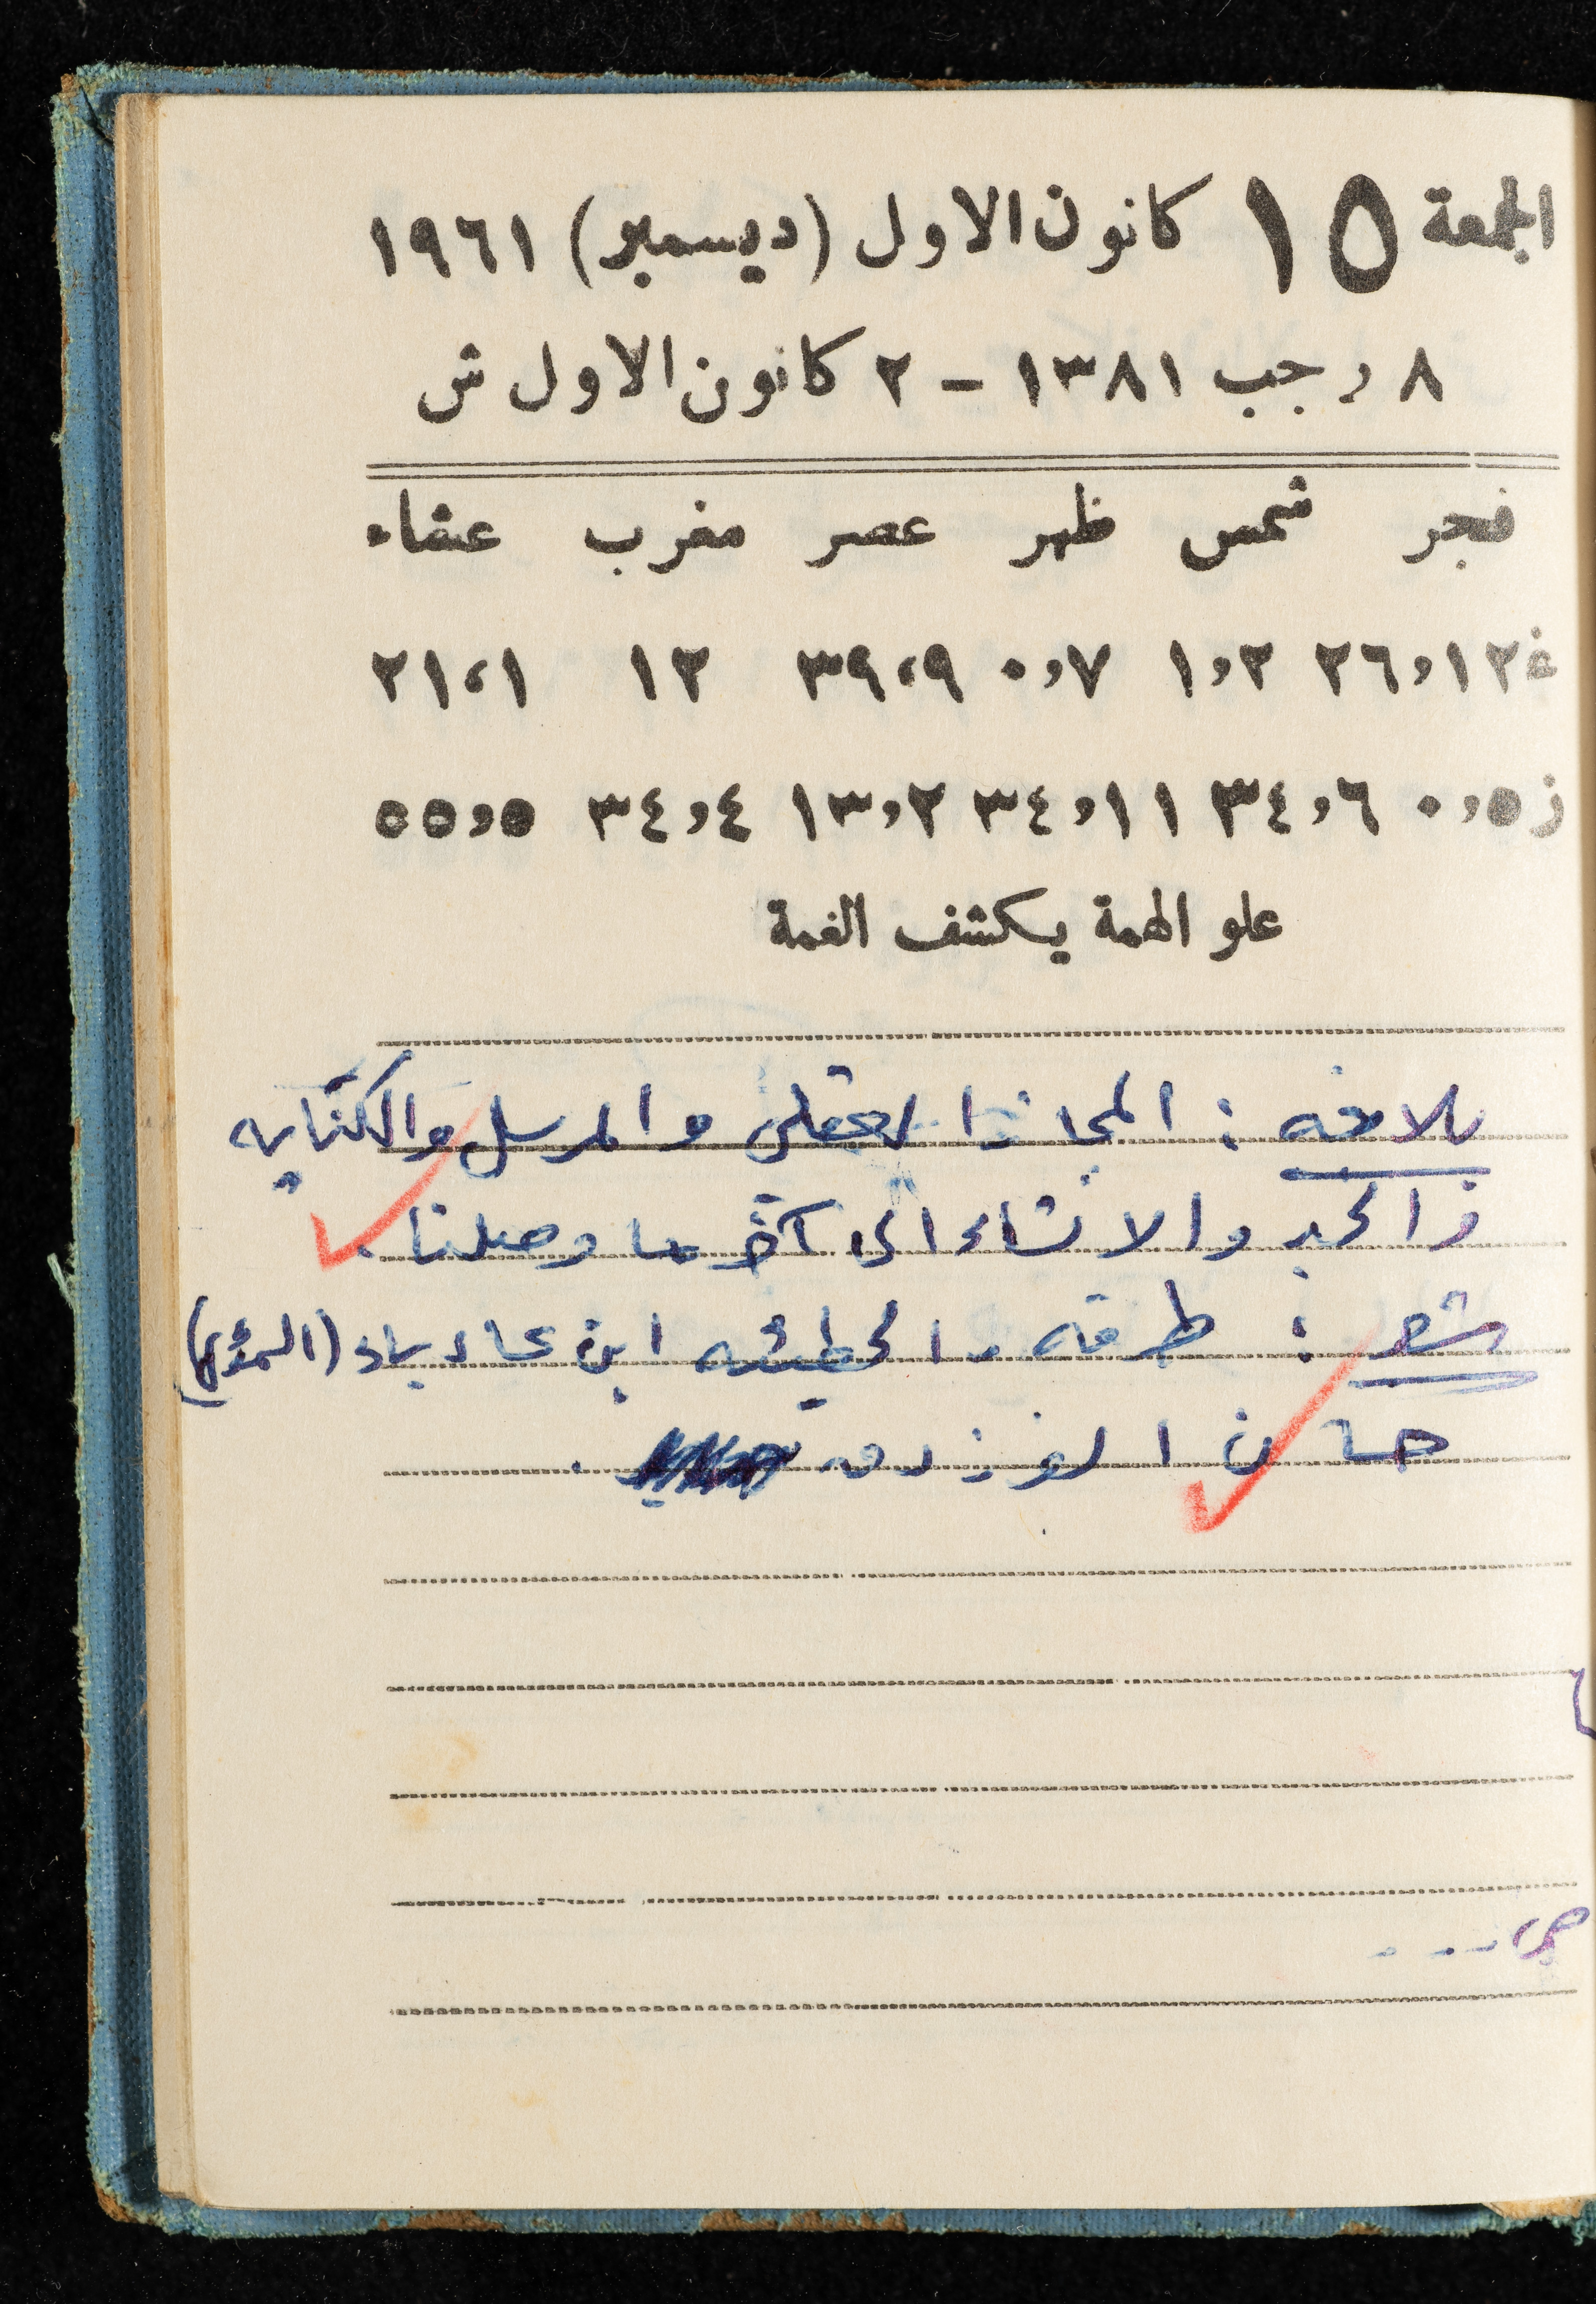 الجمعة ١٥ كانون الاول (ديسمبر) ١٩٦١
٨ رجب ١٣٨١ - ٢ كانون الاول ش
فجر شمس ظهر عصر مغرب عشاء
غ ١٢،٢٦ ٢،١ ٧،٠ ٩،٣٩ ١٢ ١،٢١
ز ٥،٠ ٦،٣٤ ١١،٣٤ ٢،١٣ ٤،٣٤ ٥،٥٥
علو الهمة يكشف الغمة
بلاغه : المجاز العقلي والمرسل والكنايه
والخبر والانشاء الى آخر ما وصلنا .
شعر : طرفه والحطيئه ابن عادياء (السمؤل)
حسان الفرزدق .